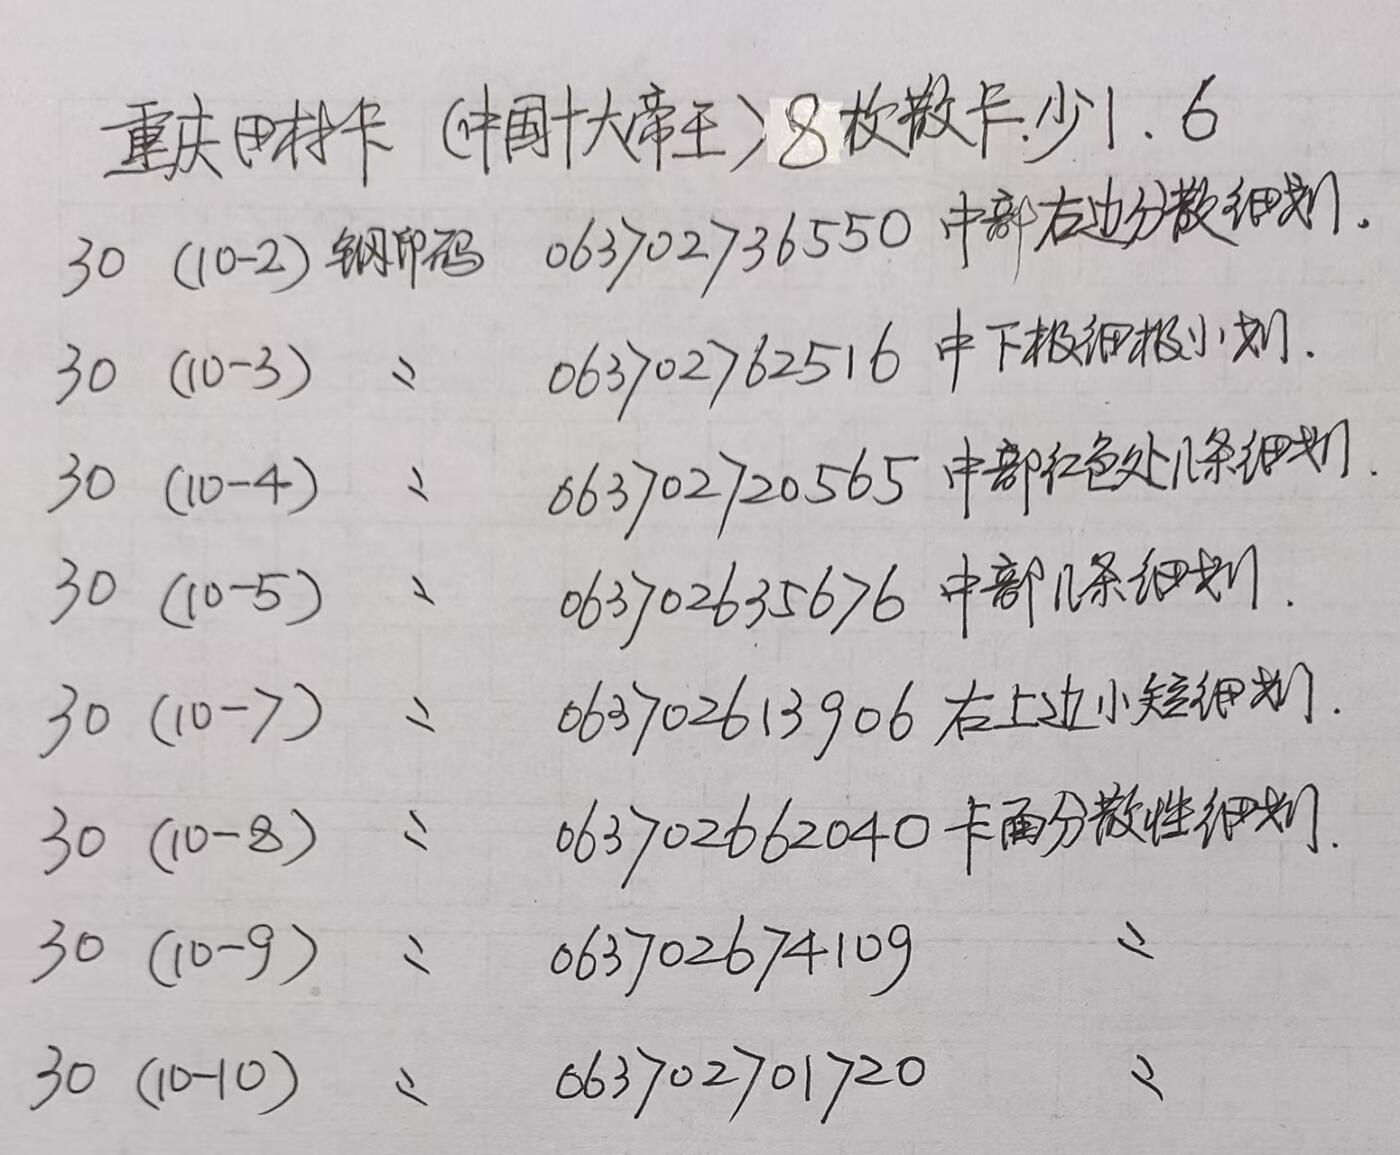 重庆田村卡(中国十大帝王)8枚散卡.少1.6
30 (10-2) 钢印码 063702736550 中部右边分散细划.
30 (10-3) 〃 063702762516 中下极细极小划.
30 (10-4) 〃 063702720565 中部红色处几条细划.
30 (10-5) 〃 063702635676 中部几条细划.
30 (10-7) 〃 063702613906 右上边小短细划.
30 (10-8) 〃 063702662040 卡面分散性细划.
30 (10-9) 〃 063702674109 〃
30 (10-10) 〃 063702701720 〃